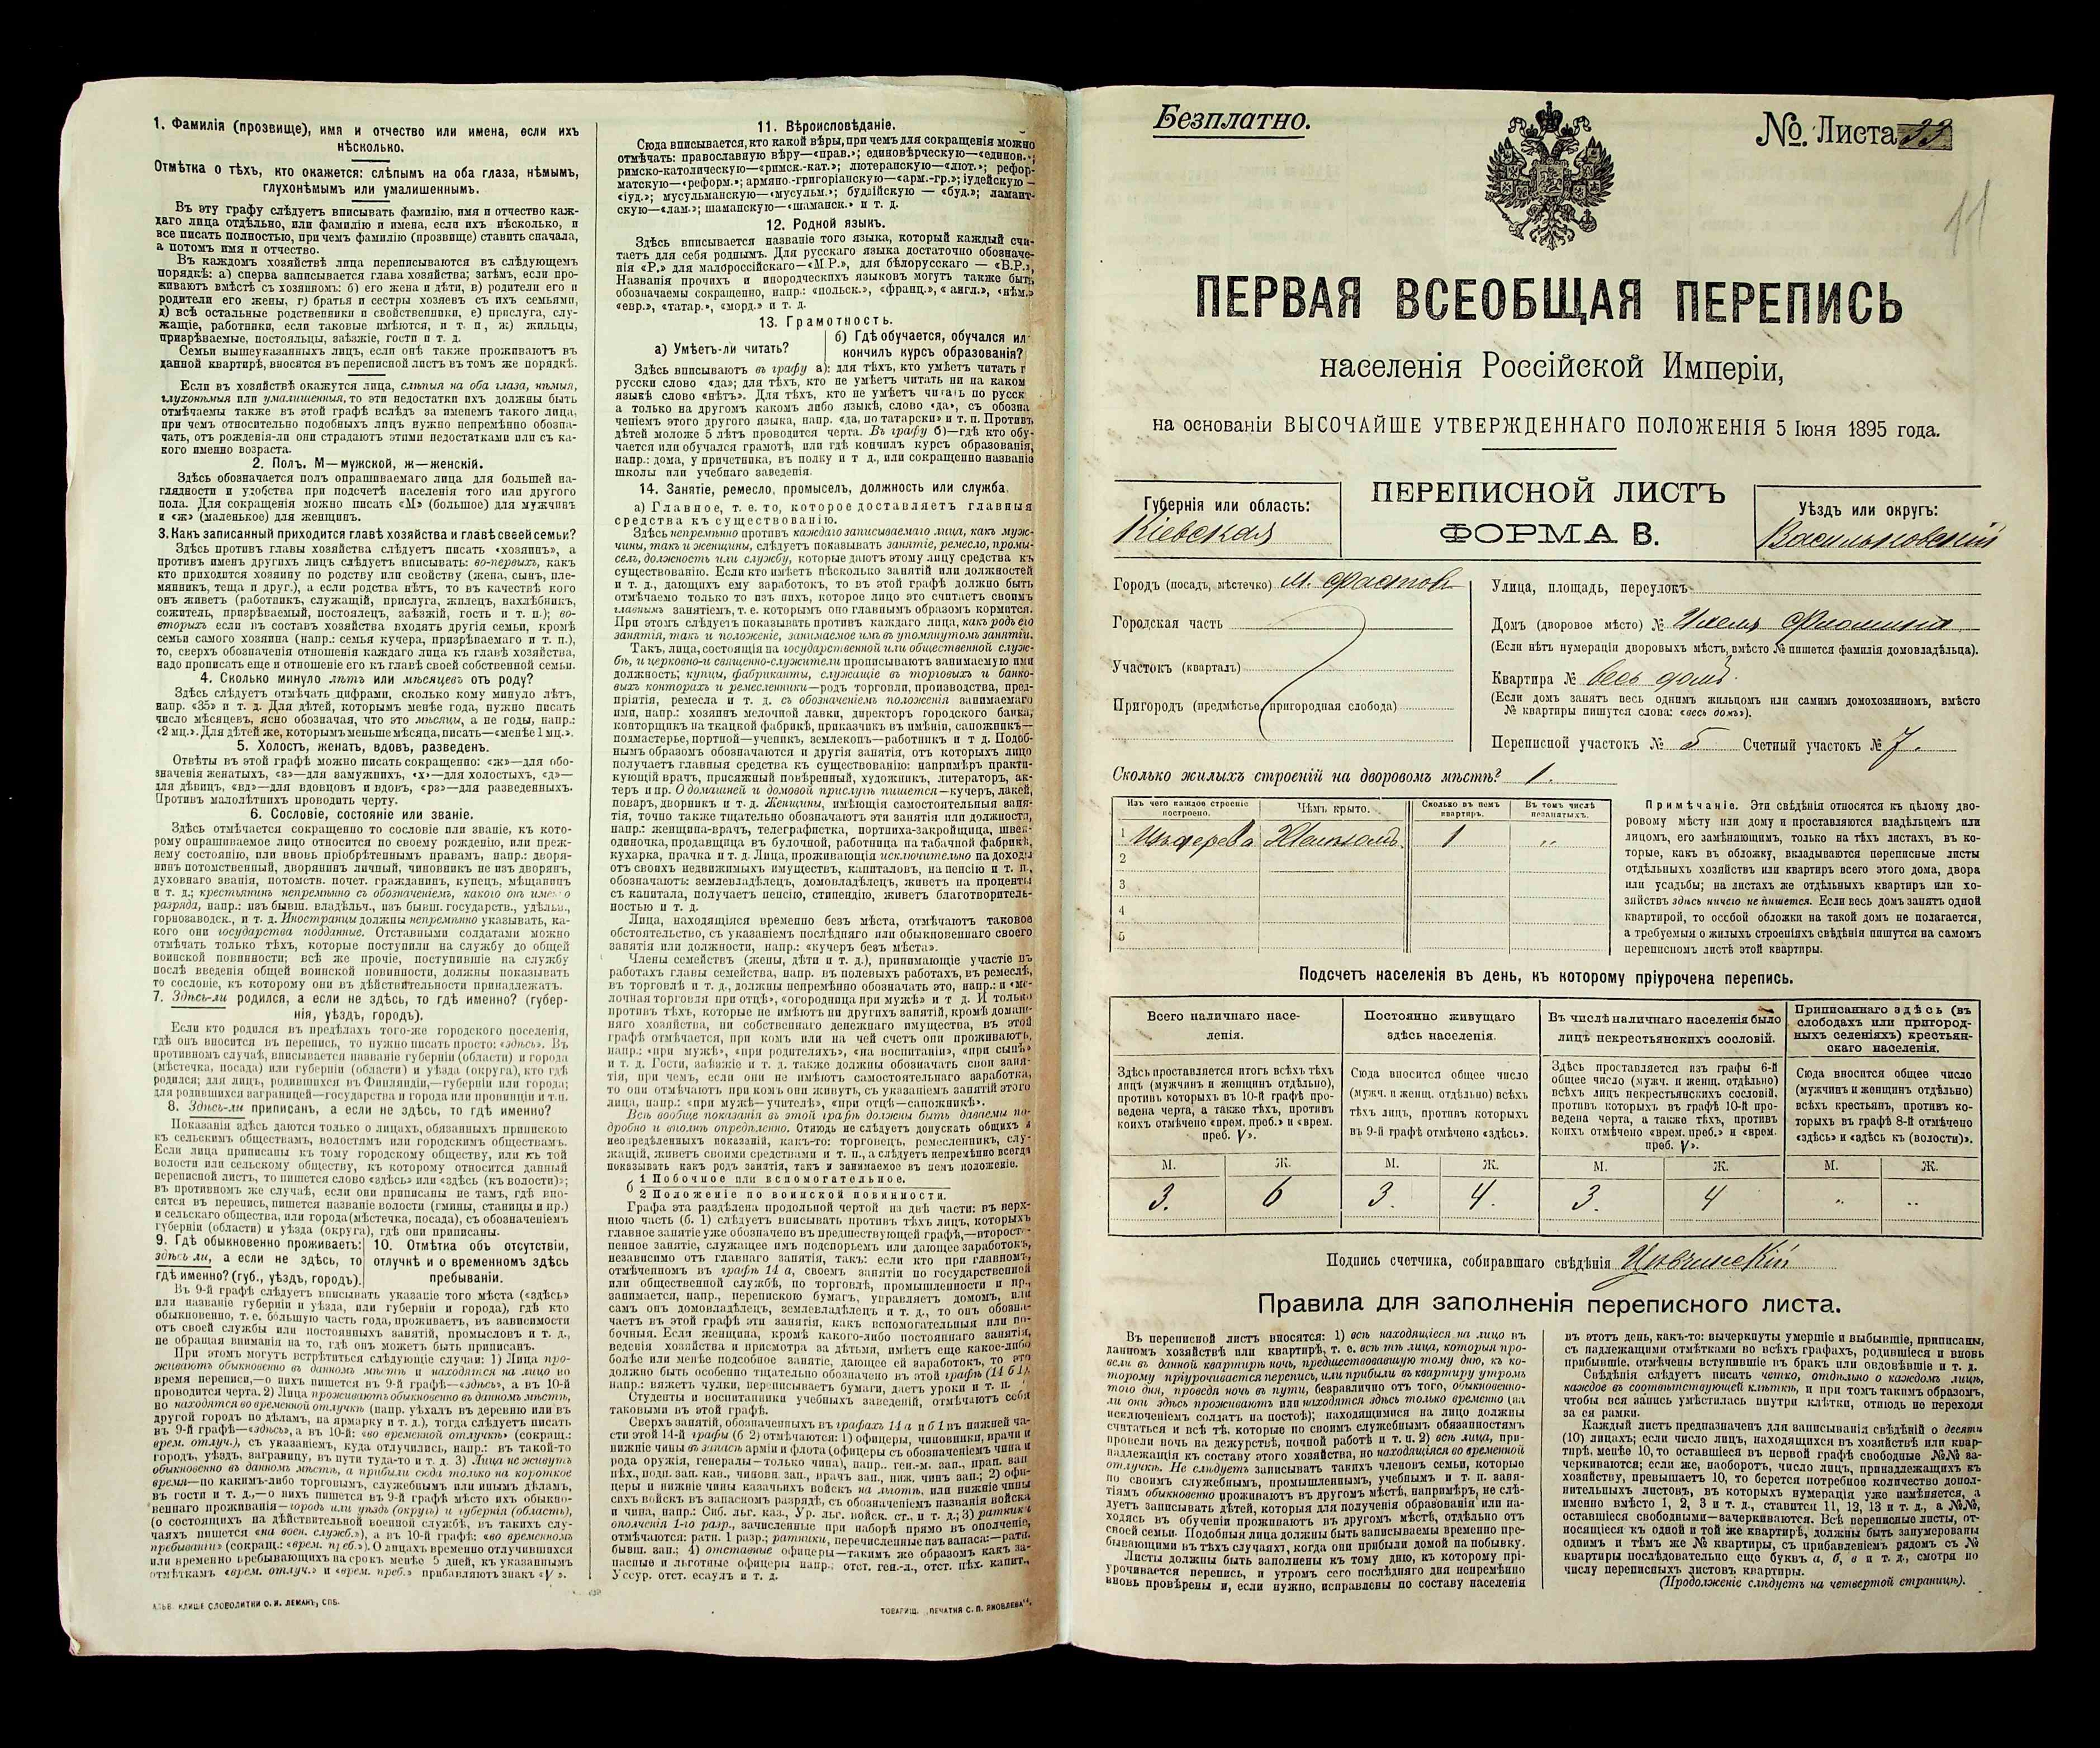 1. Фамилія (прозвище), имя и отчество или имена, если ихъ
нѣсколько.
Отмѣтка о тѣхъ, кто окажется: слѣпымъ на оба глаза, нѣмымъ,
глухонѣмымъ или умалишеннымъ.
Въ эту графу слѣдуетъ вписывать фамилію, имя и отчество каж-
даго лица отдѣльно, или фамилію и имена, если ихъ нѣсколько, и
все писать полностью, при чемъ фамилію (прозвище) ставить сначала,
а потомъ имя и отчество.
Въ каждомъ хозяйствѣ лица переписываются въ слѣдующемъ
порядкѣ: а) сперва записывается глава хозяйства; затѣмъ, если про-
живаютъ вмѣстѣ съ хозяиномъ: б) его жена и дѣти, в) родители его и
родители его жены, г) братья и сестры хозяевъ съ ихъ семьями,
д) всѣ остальные родственники и свойственники, е) прислуга, слу-
жащіе, работники, если таковые имѣются, и т. п, ж) жильцы,
призрѣваемые, постояльцы, заѣзжіе, гости и т. д.
Семьи вышеуказанныхъ лицъ, если онѣ также проживаютъ въ
данной квартирѣ, вносятся въ переписной листъ въ томъ же порядкѣ.
Если въ хозяйствѣ окажутся лица, слѣпыя на оба глаза, нѣмыя,
глухонѣмыя или умалишенныя, то эти недостатки ихъ должны быть
отмѣчаемы также въ этой графѣ вслѣдъ за именемъ такого лица,
при чемъ относительно подобныхъ лицъ нужно непремѣнно обозна-
чать, отъ рожденія-ли они страдаютъ этими недостатками или съ ка-
кого именно возраста.
2. Полъ. М—мужской, ж—женскій.
Здѣсь обозначается полъ опрашиваемаго лица для большей на-
глядности и удобства при подсчетѣ населенія того или другого
пола. Для сокращенія можно писать «М» (большое) для мужчинъ
и «ж» (маленькое) для женщинъ.
3. Какъ записанный приходится главѣ хозяйства и главѣ своей семьи?
Здѣсь противъ главы хозяйства слѣдуетъ писать «хозяинъ», а
противъ именъ другихъ лицъ слѣдуетъ вписывать: во-первыхъ, какъ
кто приходится хозяину по родству или свойству (жена, сынъ, пле-
мянникъ, теща и друг.), а если родства нѣтъ, то въ качествѣ кого
онъ живетъ (работникъ, служащій, прислуга, жилецъ, нахлѣбникъ,
сожитель, призрѣваемый, постоялецъ, заѣзжій, гость и т. п.); во-
вторыхъ если въ составъ хозяйства входятъ другія семьи, кромѣ
семьи самого хозяина (напр.: семья кучера, призрѣваемаго и т. п.),
то, сверхъ обозначенія отношенія каждаго лица къ главѣ хозяйства,
надо прописать еще и отношеніе его къ главѣ своей собственной семьи.
4. Сколько минуло лѣтъ или мѣсяцевъ отъ роду?
Здѣсь слѣдуетъ отмѣчать цифрами, сколько кому минуло лѣтъ,
напр. «35» и т. д. Для дѣтей, которымъ менѣе года, нужно писать
число мѣсяцевъ, ясно обозначая, что это мѣсяцы, а не годы, напр.:
«2 мц.». Для дѣтей же, которымъ меньше мѣсяца, писать—«менѣе 1 мц.».
5. Холостъ, женатъ, вдовъ, разведенъ.
Отвѣты въ этой графѣ можно писать сокращенно: «ж»—для обо-
значенія женатыхъ, «з»—для замужнихъ, «х»—для холостыхъ, «д»—
для дѣвицъ, «вд»—для вдовцовъ и вдовъ, «рз»—для разведенныхъ.
Противъ малолѣтнихъ проводить черту.
6. Сословіе, состояніе или званіе.
Здѣсь отмѣчается сокращенно то сословіе или званіе, къ кото-
рому опрашиваемое лицо относится по своему рожденію, или преж-
нему состоянію, или вновь пріобрѣтеннымъ правамъ, напр.: дворя-
нинъ потомственный, дворянинъ личный, чиновникъ не изъ дворянъ,
духовнаго званія, потомств. почет. гражданинъ, купецъ, мѣщанинъ
и т. д.; крестьянинъ непремѣнно съ обозначеніемъ, какого онъ именно
разряда, напр.: изъ бывш. владѣльч., изъ бывш. государств., удѣльн.,
горнозаводск., и т. д. Иностранцы должны непремѣнно указывать, ка-
кого они государства подданные. Отставными солдатами можно
отмѣчать только тѣхъ, которые поступили на службу до общей
воинской повинности; всѣ же прочіе, поступившіе на службу
послѣ введенія общей воинской повинности, должны показывать
то сословіе, къ которому они въ дѣйствительности принадлежатъ.
7. Здѣсь-ли родился, а если не здѣсь, то гдѣ именно? (губер-
нія, уѣздъ, городъ).
Если кто родился въ предѣлахъ того-же городского поселенія,
гдѣ онъ вносится въ перепись, то нужно писать просто: «здѣсь». Въ
противномъ случаѣ, вписывается названіе губерніи (области) и города
(мѣстечка, посада) или губерніи (области) и уѣзда (округа), кто гдѣ
родился; для лицъ, родившихся въ Финляндіи,—губерніи или города;
для родившихся заграницей—государства и города или провинціи и т.п.
8. Здѣсь-ли приписанъ, а если не здѣсь, то гдѣ именно?
Показанія здѣсь даются только о лицахъ, обязанныхъ припискою
къ сельскимъ обществамъ, волостямъ или городскимъ обществамъ.
Если лица приписаны къ тому городскому обществу, или къ той
волости или сельскому обществу, къ которому относится данный
переписной листъ, то пишется слово «здѣсь» или «здѣсь (къ волости)»;
въ противномъ же случаѣ, если они приписаны не тамъ, гдѣ вно-
сятся въ перепись, пишется названіе волости (гмины, станицы и пр.)
и сельскаго общества, или города (мѣстечка, посада), съ обозначеніемъ
губерніи (области) и уѣзда (округа), гдѣ они приписаны.
9. Гдѣ обыкновенно проживаетъ:
здѣсь ли, а если не здѣсь, то
гдѣ именно? (губ., уѣздъ, городъ).
10. Отмѣтка объ отсутствіи,
отлучкѣ и о временномъ здѣсь
пребываніи.
Въ 9-й графѣ слѣдуетъ вписывать указаніе того мѣста («здѣсь»
или названіе губерніи и уѣзда, или губерніи и города), гдѣ кто
обыкновенно, т. е. бо́льшую часть года, проживаетъ, въ зависимости
отъ своей службы или постоянныхъ занятій, промысловъ и т. д.,
не обращая вниманія на то, гдѣ онъ можетъ быть приписанъ.
При этомъ могутъ встрѣтиться слѣдующіе случаи: 1) Лица про-
живаютъ обыкновенно въ данномъ мѣстѣ и находятся на лицо во
время переписи,—о нихъ пишется въ 9-й графѣ—«здѣсь», а въ 10-й
проводится черта. 2) Лица проживаютъ обыкновенно въ данномъ мѣстѣ,
но находятся во временной отлучкѣ (напр. уѣхалъ въ деревню или въ
другой городъ по дѣламъ, на ярмарку и т. д.), тогда слѣдуетъ писать
въ 9-й графѣ—«здѣсь», а въ 10-й: «во временной отлучкѣ» (сокращ.:
врем. отлуч.), съ указаніемъ, куда отлучились, напр.: въ такой-то
городъ, уѣздъ, заграницу, въ пути туда-то и т. д. 3) Лица не живутъ
обыкновенно въ данномъ мѣстѣ, а прибыли сюда только на короткое
время—по какимъ-либо торговымъ, служебнымъ или инымъ дѣламъ,
въ гости и т. д.,—о нихъ пишется въ 9-й графѣ мѣсто ихъ обыкно-
веннаго проживанія—городъ или уѣздъ (округъ) и губернія (область),
(о состоящихъ на дѣйствительной военной службѣ, въ такихъ слу-
чаяхъ пишется «на воен. службѣ»), а въ 10-й графѣ: «во временномъ
пребываніи» (сокращ.: «врем. преб.»). О лицахъ временно отлучившихся
или временно пребывающихъ на срокъ менѣе 5 дней, къ указаннымъ
отмѣткамъ «врем. отлуч.» и «врем. преб.» прибавляютъ знакъ «V».
КЛИШЕ СЛОВОЛИТНИ О. И. ЛЕМАНЪ, СПБ.
11. Вѣроисповѣданіе.
Сюда вписывается, кто какой вѣры, при чемъ для сокращенія можно
отмѣчать: православную вѣру—«прав.»; единовѣрческую—«единов.»;
римско-католическую—«римск.-кат.»; лютеранскую—«лют.»; рефор-
матскую—«реформ.»; армяно.-григоріанскую—«арм.-гр.»; іудейскую—
«іуд.»; мусульманскую—«мусульм.»; буддійскую — «буд.»; ламаит-
скую—«лам.»; шаманскую—«шаманск.» и т. д.
12. Родной языкъ.
Здѣсь вписывается названіе того языка, который каждый счи-
таетъ для себя роднымъ. Для русскаго языка достаточно обозначе-
нія «Р.» для малороссійскаго—«М.Р.», для бѣлорусскаго — «Б.Р.»,
Названія прочихъ и инородческихъ языковъ могутъ также быть
обозначаемы сокращенно, напр.: «польск.», «франц.», «англ.», «нѣм.»
«евр.», «татар.», «морд.» и т. д.
13. Грамотность.
а) Умѣетъ-ли читать?
б) Гдѣ обучается, обучался ил
кончилъ курсъ образованія?
Здѣсь вписываютъ въ графу а): для тѣхъ, кто умѣетъ читать г
русски слово «да»; для тѣхъ, кто не умѣетъ читать ни на каком
языкѣ слово «нѣтъ». Для тѣхъ, кто не умѣетъ читать по русск
а только на другомъ какомъ либо языкѣ, слово «да», съ обозна
ченіемъ этого другого языка, напр. «да, по татарски» и т. п. Противъ
дѣтей моложе 5 лѣтъ проводится черта. Въ графу б)—гдѣ кто обу-
чается или обучался грамотѣ, или гдѣ кончилъ курсъ образованія,
напр.: дома, у причетника, въ полку и т д., или сокращенно названіе
школы или учебнаго заведенія.
14. Занятіе, ремесло, промыселъ, должность или служба.
а) Главное, т. е. то, которое доставляетъ главныя
средства къ существованію.
Здѣсь непремѣнно противъ каждаго записываемаго лица, какъ муж-
чины, такъ и женщины, слѣдуетъ показывать занятіе, ремесло, промы-
селъ, должность или службу, которые даютъ этому лицу средства къ
существованію. Если кто имѣетъ нѣсколько занятій или должностей
и т. д., дающихъ ему заработокъ, то въ этой графѣ должно быть
отмѣчаемо только то изъ нихъ, которое лицо это считаетъ своимъ
главнымъ занятіемъ, т. е. которымъ оно главнымъ образомъ кормится.
При этомъ слѣдуетъ показывать противъ каждаго лица, какъ родъ его
занятія, такъ и положеніе, занимаемое имъ въ упомянутомъ занятіи.
Такъ, лица, состоящія на государственной или общественной служ-
бѣ, и церковно-и священно-служители прописываютъ занимаемую ими
должность; купцы, фабриканты, служащіе въ торговыхъ и банко-
выхъ конторахъ и ремесленники—родъ торговли, производства, пред-
пріятія, ремесла и т. д. съ обозначеніемъ положенія занимаемаго
ими, напр.: хозяинъ мелочной лавки, директоръ городского банка,
конторщикъ на ткацкой фабрикѣ, приказчикъ въ имѣніи, сапожникъ—
подмастерье, портной—ученикъ, землекопъ—работникъ и т д. Подоб-
нымъ образомъ обозначаются и другія занятія, отъ которыхъ лицо
получаетъ главныя средства къ существованію: напримѣръ практи-
кующій врачъ, присяжный повѣренный, художникъ, литераторъ, ак-
теръ и пр. О домашней и домовой прислугѣ пишется—кучеръ, лакей,
поваръ, дворникъ и т. д. Женщины, имѣющія самостоятельныя заня-
тія, точно также тщательно обозначаютъ эти занятія или должности,
напр.: женщина-врачъ, телеграфистка, портниха-закройщица, швея-
одиночка, продавщица въ булочной, работница на табачной фабрикѣ,
кухарка, прачка и т. д. Лица, проживающія исключительно на доходы
отъ своихъ недвижимыхъ имуществъ, капиталовъ, на пенсію и т. п.,
обозначаютъ: землевладѣлецъ, домовладѣлецъ, живетъ на проценты
съ капитала, получаетъ пенсію, стипендію, живетъ благотворитель-
ностью и т. д.
Лица, находящіяся временно безъ мѣста, отмѣчаютъ таковое
обстоятельство, съ указаніемъ послѣдняго или обыкновеннаго своего
занятія или должности, напр.: «кучеръ безъ мѣста».
Члены семействъ (жены, дѣти и т. д.), принимающіе участіе въ
работахъ главы семейства, напр. въ полевыхъ работахъ, въ ремеслѣ,
въ торговлѣ и т. д., должны непремѣнно обозначать это, напр.: и «ме-
лочная торговля при отцѣ», «огородница при мужѣ» и т д. И только
противъ тѣхъ, которые не имѣютъ ни другихъ занятій, кромѣ домаш-
няго хозяйства, ни собственнаго денежнаго имущества, въ этой
графѣ отмѣчается, при комъ или на чей счетъ они проживаютъ,
напр.: «при мужѣ», «при родителяхъ», «на воспитаніи», «при сынѣ»
и т. д. Гости, заѣзжіе и т. д. также должны обозначать свои заня-
тія, при чемъ, если они не имѣютъ самостоятельнаго заработка,
то они отмѣчаютъ при комъ они живутъ, съ указаніемъ занятій этого
лица, напр.: «при мужѣ—учителѣ», «при отцѣ—сапожникѣ».
Всѣ вообще показанія въ этой графѣ должны быть даваемы по-
дробно и вполнѣ опредѣленно. Отнюдь не слѣдуетъ допускать общихъ и
неопредѣленныхъ показаній, какъ-то: торговецъ, ремесленникъ, слу-
жащій, живетъ своими средствами и т. п., а слѣдуетъ непремѣнно всегда
показывать какъ родъ занятія, такъ и занимаемое въ немъ положеніе.
б 1 Побочное или вспомогательное.
2 Положеніе по воинской повинности.
Графа эта раздѣлена продольной чертой на двѣ части: въ верх-
нюю часть (б. 1) слѣдуетъ вписывать противъ тѣхъ лицъ, которыхъ
главное занятіе уже обозначено въ предшествующей графѣ,—второсте-
пенное занятіе, служащее имъ подспорьемъ или дающее заработокъ,
независимо отъ главнаго занятія, такъ: если кто при главномъ,
отмѣченномъ въ графѣ 14 а, своемъ занятіи по государственной
или общественной службѣ, по торговлѣ, промышленности и пр.,
занимается, напр., перепискою бумагъ, управляетъ домомъ, или
самъ онъ домовладѣлецъ, землевладѣлецъ и т. д., то онъ обозна-
чаетъ въ этой графѣ эти занятія, какъ вспомогательныя или по-
бочныя. Если женщина, кромѣ какого-либо постояннаго занятія,
веденія хозяйства и присмотра за дѣтьми, имѣетъ еще какое-либо
болѣе или менѣе подсобное занятіе, дающее ей заработокъ, то это
должно быть особенно тщательно обозначено въ этой графѣ (14 б 1),
напр.: вяжетъ чулки, переписываетъ бумаги, даетъ уроки и т. п.
Студенты и воспитанники учебныхъ заведеній, отмѣчаютъ себя
таковыми въ этой графѣ.
Сверхъ занятій, обозначенныхъ въ графахъ 14 а и б 1 въ нижней ча-
сти этой 14-й графы (б 2) отмѣчаются: 1) офицеры, чиновники, врачи и
нижніе чины въ запасѣ арміи и флота (офицеры съ обозначеніемъ чина и
рода оружія, генералы—только чина), напр.. ген.-м. зап., прап. зап
пѣх., подп. зап. кав., чиновн зап., врачъ зап., ниж. чинъ зап.; 2) офи-
церы и нижніе чины казачьихъ войскъ на льготѣ, или нижніе чины
сихъ войскъ въ запасномъ разрядѣ, съ обозначеніемъ названія войска
и чина, напр.: Сиб. льг. каз., Ур. льг. войск. ст., и т. д.; 3) ратники
ополченія 1-го разр., зачисленные при наборѣ прямо въ ополченіе,
отмѣчаются: ратн. 1 разр.; ратники, перечисленные изъ запаса:—ратн.
бывш. зап.; 4) отставные офицеры—такимъ же образомъ какъ за-
пасные и льготные офицеры напр.: отст. ген.-л., отст. пѣх. капит.,
Уссур. отст. есаулъ и т. д.
ТОВАРИЩ. „ПЕЧАТНЯ С. П. ЯКОВЛЕВА“.
Безплатно.
№. Листа 33
11
ПЕРВАЯ ВСЕОБЩАЯ ПЕРЕПИСЬ
населенія Россійской Имперіи,
на основаніи ВЫСОЧАЙШЕ УТВЕРЖДЕННАГО ПОЛОЖЕНІЯ 5 Іюня 1895 года.
Губернія или область:
Кіевская
ПЕРЕПИСНОЙ ЛИСТЪ
ФОРМА В.
Уѣздъ или округъ:
Васильковскій
Городъ (посадъ, мѣстечко) м. Фастовъ
Городская часть
Участокъ (кварталъ)
Пригородъ (предмѣстье, пригородная слобода)
Улица, площадь, переулокъ
Домъ (дворовое мѣсто) №
(Если нѣтъ нумераціи дворовыхъ мѣстъ, вмѣсто № пишется фамилія домовладѣльца).
Квартира № весь домъ.
(Если домъ занятъ весь однимъ жильцомъ или самимъ домохозяиномъ, вмѣсто
№ квартиры пишутся слова: «весь домъ»).
Переписной участокъ № 5 Счетный участокъ № 7.
Сколько жилыхъ строеній на дворовомъ мѣстѣ? 1.
Изъ чего каждое строеніе
построено.
Чѣмъ крыто.
Сколько въ немъ
квартиръ.
Въ томъ числѣ
незанятыхъ.
1 Изъ дерева 1 „
2
3
4
5
Примѣчаніе. Эти свѣдѣнія относятся къ цѣлому дво-
ровому мѣсту или дому и проставляются владѣльцемъ или
лицомъ, его замѣняющимъ, только на тѣхъ листахъ, въ ко-
торые, какъ въ обложку, вкладываются переписные листы
отдѣльныхъ хозяйствъ или квартиръ всего этого дома, двора
или усадьбы; на листахъ же отдѣльныхъ квартиръ или хо-
зяйствъ здѣсь ничего не пишется. Если весь домъ занятъ одной
квартирой, то особой обложки на такой домъ не полагается,
а требуемыя о жилыхъ строеніяхъ свѣдѣнія пишутся на самомъ
переписномъ листѣ этой квартиры.
Подсчетъ населенія въ день, къ которому пріурочена перепись.
Всего наличнаго насе-
ленія.
Здѣсь проставляется итогъ всѣхъ тѣхъ
лицъ (мужчинъ и женщинъ отдѣльно),
противъ которыхъ въ 10-й графѣ про-
ведена черта, а также тѣхъ, противъ
коихъ отмѣчено «врем. проб.» и «врем.
преб. V».
Постоянно живущаго
здѣсь населенія.
Сюда вносится общее число
(мужч. и женщ. отдѣльно) всѣхъ
тѣхъ лицъ, противъ которыхъ
въ 9-й графѣ отмѣчено «здѣсь».
Въ числѣ наличнаго населенія было
лицъ некрестьянскихъ сословій.
Здѣсь проставляется изъ графы 6-й
общее число (мужч. и женщ. отдѣльно)
всѣхъ лицъ некрестьянскихъ сословій,
противъ которыхъ въ графѣ 10-й про-
ведена черта, а также тѣхъ, противъ
коихъ отмѣчено «врем. преб.» и «врем.
преб. V».
Приписаннаго здѣсь (въ
слободахъ или пригород-
ныхъ селеніяхъ) крестьян-
скаго населенія.
Сюда вносится общее число
(мужчинъ и женщинъ отдѣльно)
всѣхъ крестьянъ, противъ ко-
торыхъ въ графѣ 8-й отмѣчено
«здѣсь» и «здѣсь къ (волости)».
М. Ж. М. Ж. М. Ж. М. Ж.
3. 6 3. 4. 3. 4 „ „
Подпись счетчика, собиравшаго свѣдѣнія
Правила для заполненія переписного листа.
Въ переписной листъ вносятся: 1) всѣ находящіеся на лицо въ
данномъ хозяйствѣ или квартирѣ, т. е. всѣ тѣ лица, которыя про-
вели въ данной квартирѣ ночь, предшествовавшую тому дню, къ ко-
торому пріурочивается перепись, или прибыли въ квартиру утромъ
того дня, проведя ночь въ пути, безразлично отъ того, обыкновенно-
ли они здѣсь проживаютъ или находятся здѣсь только временно (за
исключеніемъ солдатъ на постоѣ); находящимися на лицо должны
считаться и всѣ тѣ, которые по своимъ служебнымъ обязанностямъ
провели ночь на дежурствѣ, ночной работѣ и т. п. 2) всѣ лица, при-
надлежащія къ составу этого хозяйства, но находящіяся во временной
отлучкѣ. Не слѣдуетъ записывать такихъ членовъ семьи, которые
по своимъ служебнымъ, промышленнымъ, учебнымъ и т. п. заня-
тіямъ обыкновенно проживаютъ въ другомъ мѣстѣ, напримѣръ, не слѣ-
дуетъ записывать дѣтей, которыя для полученія образованія или на-
ходясь въ обученіи проживаютъ въ другомъ мѣстѣ, отдѣльно отъ
своей семьи. Подобныя лица должны быть записываемы временно пре-
бывающими въ тѣхъ случаяхъ, когда они прибыли домой на побывку.
Листы должны быть заполнены къ тому дню, къ которому прі-
урочивается перепись, и утромъ сего послѣдняго дня непремѣнно
вновь провѣрены и, если нужно, исправлены по составу населенія
въ этотъ день, какъ-то: вычеркнуты умершіе и выбывшіе, приписаны,
съ надлежащими отмѣтками во всѣхъ графахъ, родившіеся и вновь
прибывшіе. отмѣчены вступившіе въ бракъ или овдовѣвшіе и т. д.
Свѣдѣнія слѣдуетъ писать четко, отдѣльно о каждомъ лицѣ,
каждое въ соотвѣтствующей клѣткѣ, и при томъ такимъ образомъ,
чтобы вся запись умѣстилась внутри клѣтки, отнюдь не переходя
за ея рамки.
Каждый листъ предназначенъ для записыванія свѣдѣній о десяти
(10) лицахъ; если число лицъ, находящихся въ хозяйствѣ или квар-
тирѣ, менѣе 10, то оставшіеся въ первой графѣ свободные №№ за-
черкиваются; если же, наоборотъ, число лицъ, принадлежащихъ къ
хозяйству, превышаетъ 10, то берется потребное количество допол-
нительныхъ листовъ, въ которыхъ нумерація уже измѣняется, а
именно вмѣсто 1, 2, 3 и т. д., ставится 11, 12, 13 и т. д., а №№,
оставшіеся свободными—зачеркиваются. Всѣ переписные листы, от-
носящіеся къ одной и той же квартирѣ, должны быть занумерованы
однимъ и тѣмъ же № квартиры, съ прибавленіемъ рядомъ съ №
квартиры послѣдовательно еще буквъ а, б, в и т. д., смотря по
числу переписныхъ листовъ квартиры.
(Продолженіе слѣдуетъ на четвертой страницѣ).